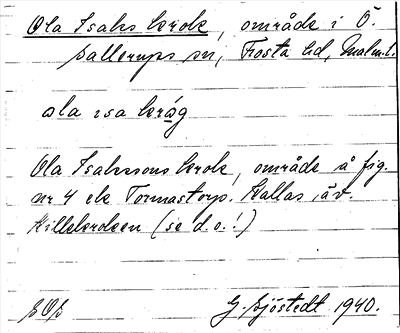 Ola Isaks krok, område i Ö.
Sallerups sn, Frosta hd, Malm.l.
ola isa kråg
Ola Isakssons krok, område å fig.
nr 4 ek Tormastorp. Kallas äv.
Killekroken (se d.o.!)
SOS G. Sjöstedt 1940.